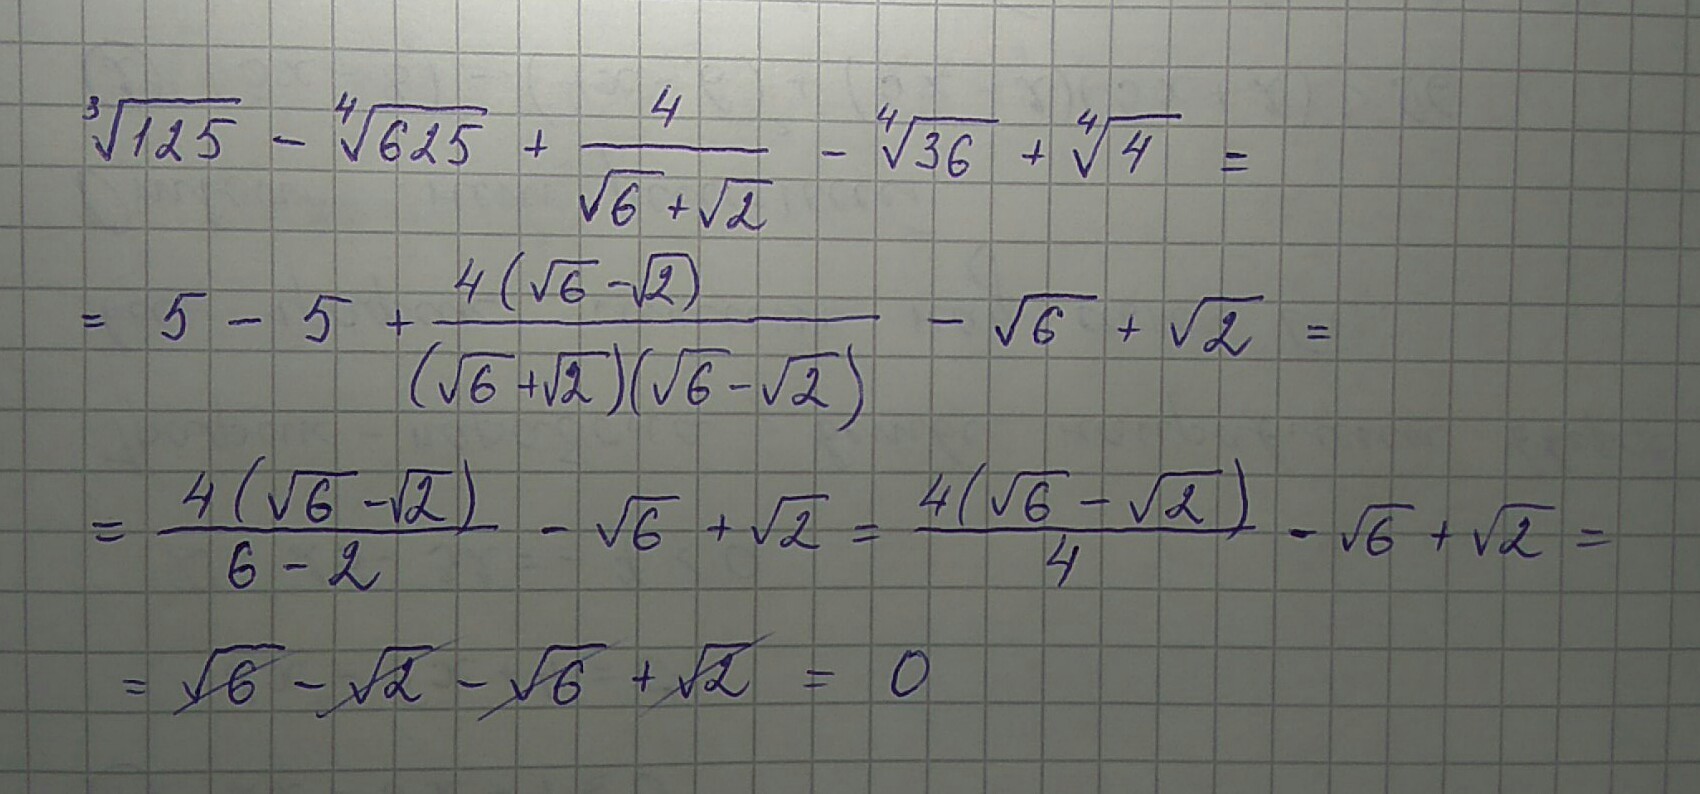 ∛125 − ∜625 + 4/(√6 + √2) − ∜36 + ∜4 =
= 5 − 5 + 4(√6 − √2)/((√6 + √2)(√6 − √2)) − √6 + √2 =
= 4(√6 − √2)/(6 − 2) − √6 + √2 = 4(√6 − √2)/4 − √6 + √2 =
= √6 − √2 − √6 + √2 = 0